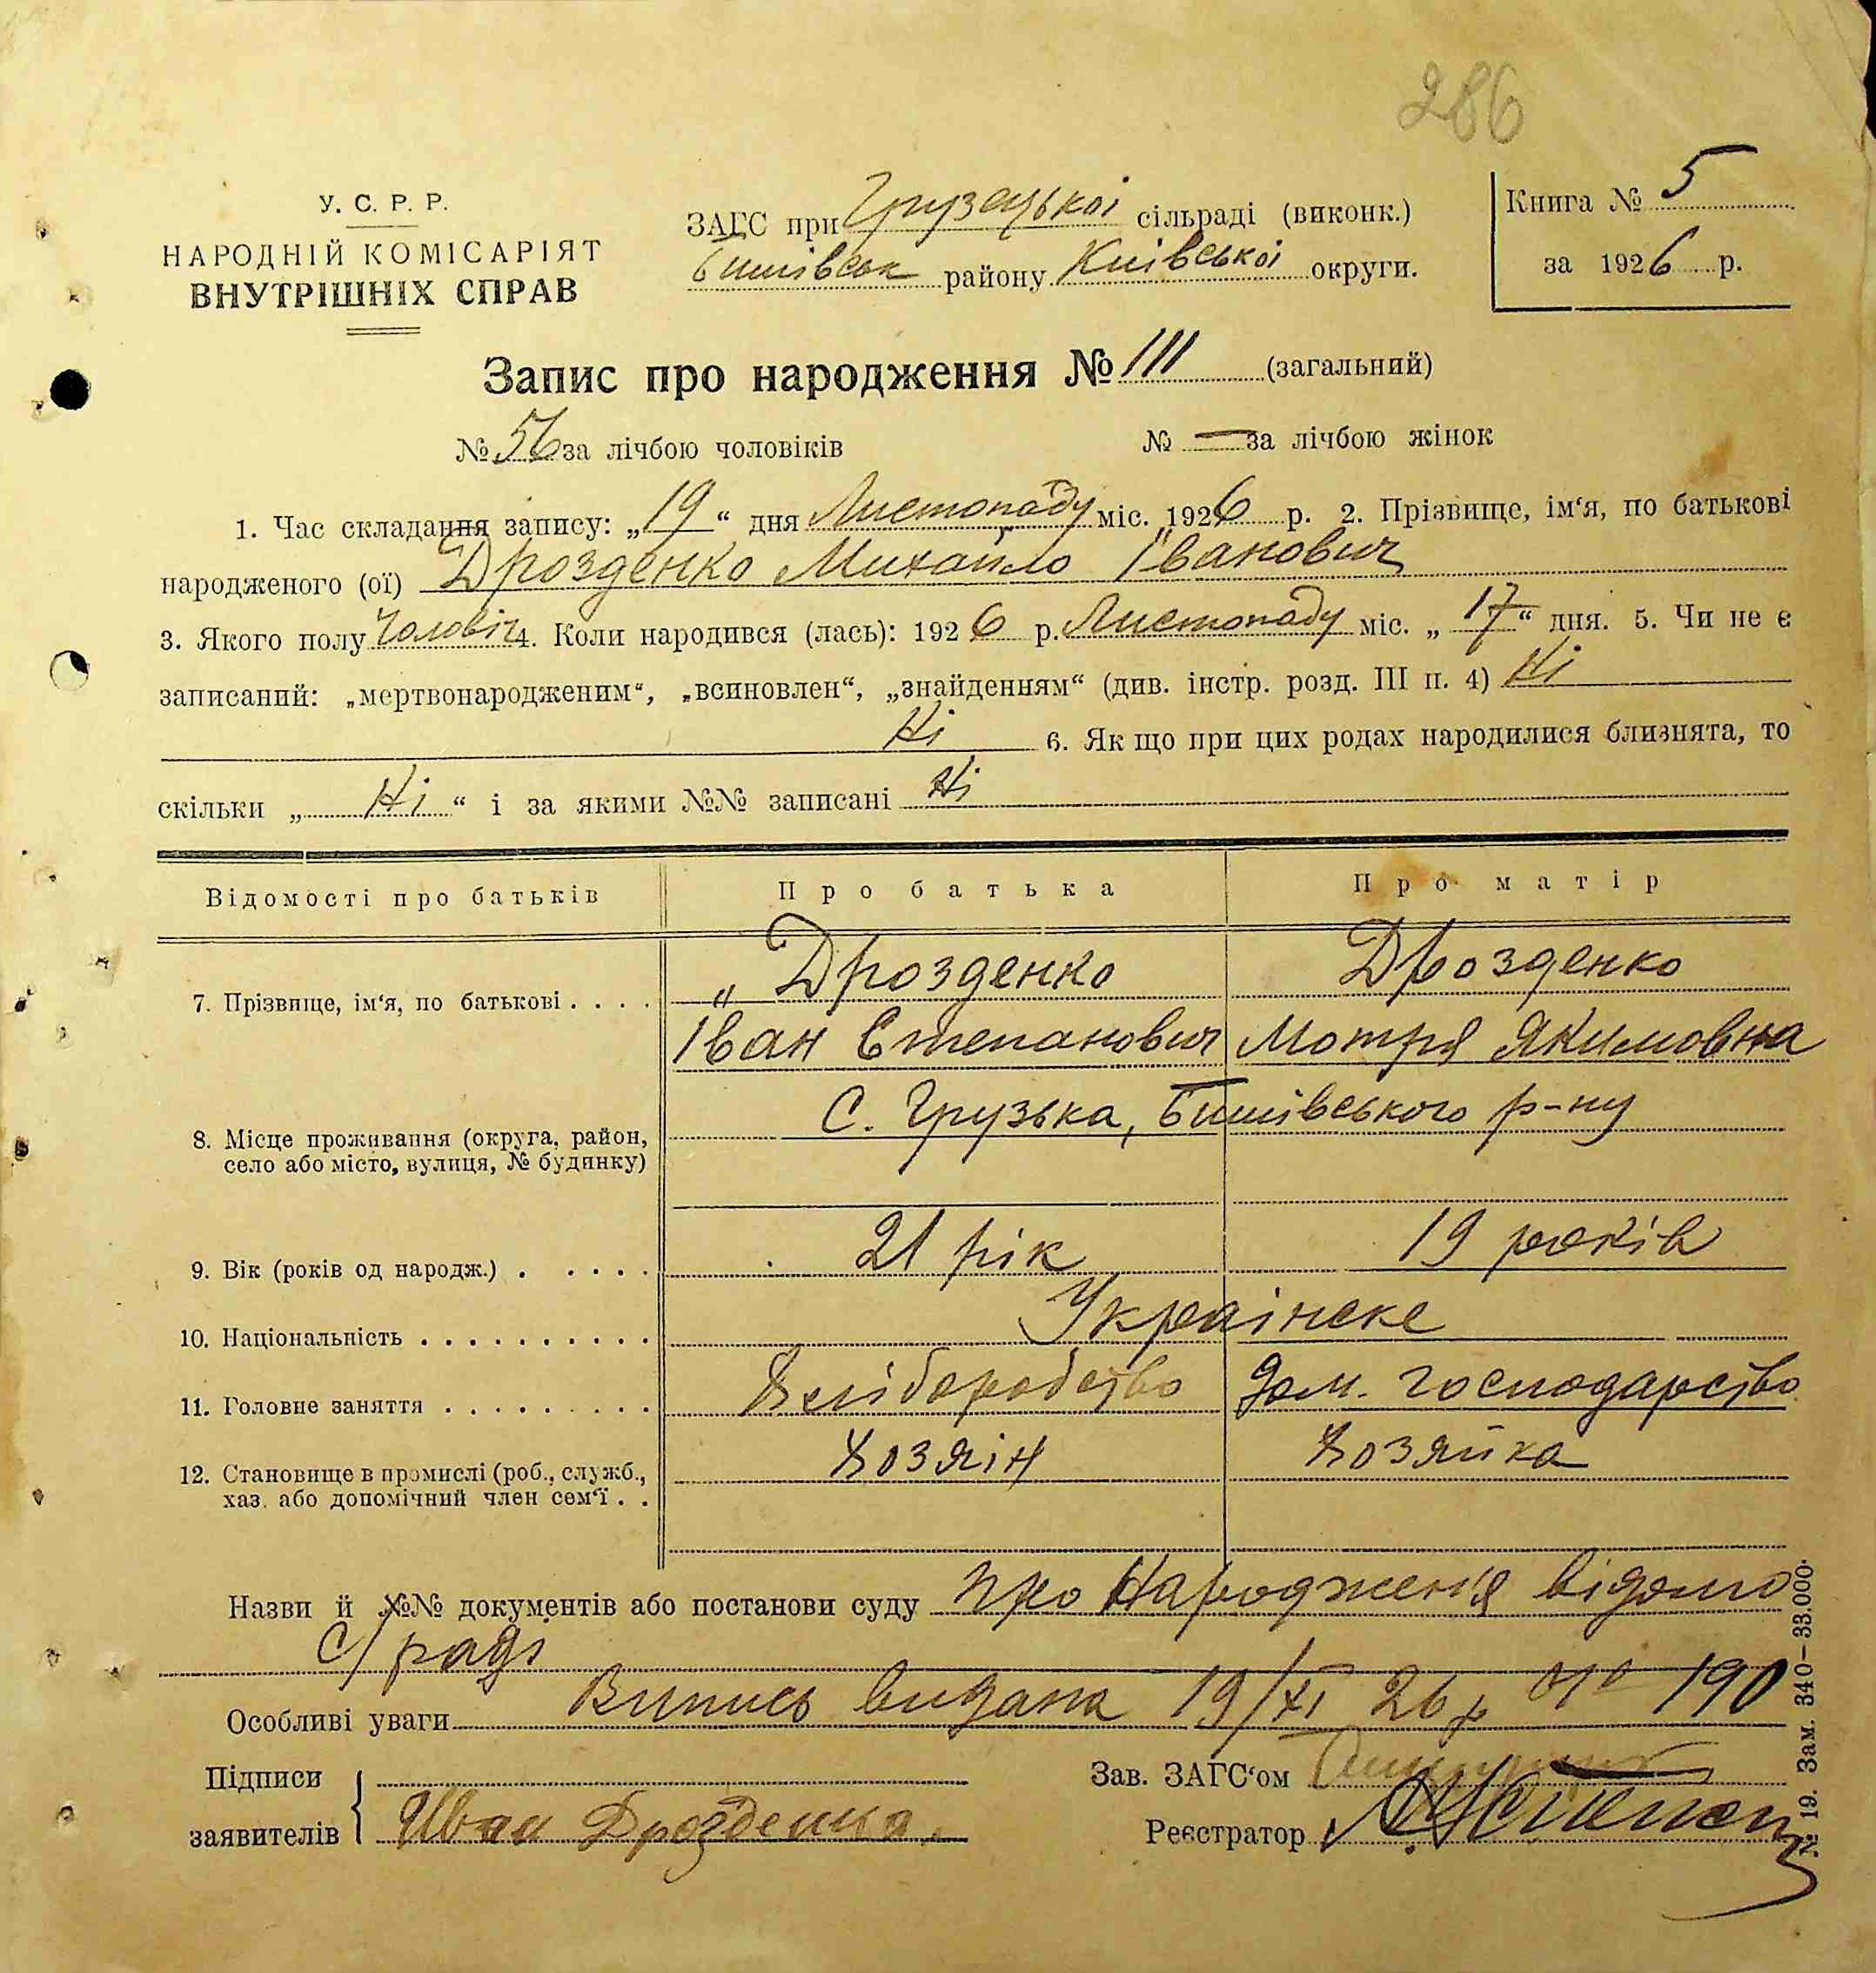 286
У. С. Р. Р.
НАРОДНІЙ КОМІСАРІЯТ
ВНУТРІШНІХ СПРАВ
ЗАГС при Грузецької сільраді (виконк.)
Бишівськ району Київської округи.
Книга № 5
за 1926 р.
Запис про народження № 111 (загальний)
№ 56 за лічбою чоловіків № — за лічбою жінок
1. Час складання запису: „19“ дня Листопаду міс. 1926 р. 2. Прізвище, ім‘я, по батькові
народженого (ої) Дрозденко Михайло Іванович
3. Якого полу Чоловіч 4. Коли народився (лась): 1926 р. Листопаду міс. „17“ дня. 5. Чи не є
записаний: „мертвонародженим“, „всиновлен“, „знайденням“ (див. інстр. розд. III п. 4) Ні
Ні 6. Як що при цих родах народилися близнята, то
скільки „Ні“ і за якими №№ записані Ні
Відомості про батьків Про батька Про матір
„ Дрозденко Дрозденко
7. Прізвище, ім‘я, по батькові . . . .
Іван Степанович Мотря Якимовна
С. Грузька, Бишівського р-ну
8. Місце проживання (округа, район,
село або місто, вулиця, № будинку)
9. Вік (років од народж.) . . . . . 21 рік 19 років
10. Національність . . . . . . . . . . Українске
11. Головне заняття . . . . . . . . . Хліборобство Дом. господарство
12. Становище в промислі (роб., служб., Хозяін Хозяйка
хаз. або допомічний член сем‘ї . .
Назви й №№ документів або постанови суду про Народження відомо
с/раді
Особливі уваги Випись видана 19/XI 26 р № 190
Підписи
заявителів Иван Дрозденко.
Зав. ЗАГС‘ом
Реєстратор
№ 19. Зам. 340—33.000.